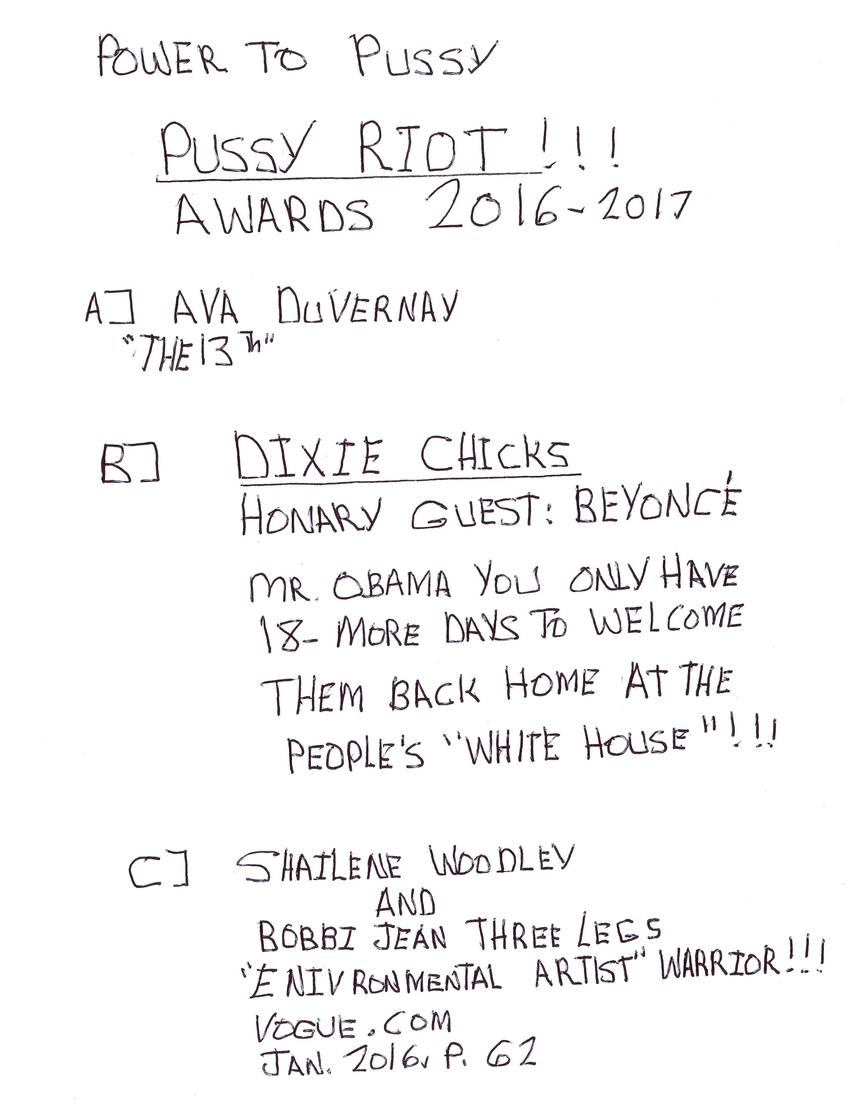 POWER TO PUSSY
PUSSY RIOT!!!
AWARDS 2016-2017
A] AVA DuVERNAY
"THE 13Th"
B] DIXIE CHICKS
HONARY GUEST: BEYONCÉ
MR. OBAMA YOU ONLY HAVE
18- MORE DAYS TO WELCOME
THEM BACK HOME AT THE
PEOPLE'S "WHITE HOUSE"!!!
C] SHAILENE WOODLEY
AND
BOBBI JEAN THREE LEGS
"ENIVRONMENTAL ARTIST" WARRIOR!!!
VOGUE.COM
JAN. 2016, P. 62